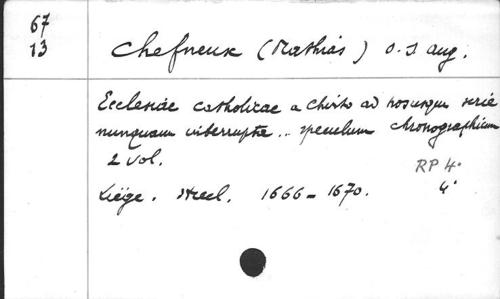 67
13
Chefneux (Mathias) O.S. aug.
Ecclesiae catholicae a Christo ad nosusque serie
nunquam interrupta .. speculum chronographicum
2 vol.
RP 4°
Liège. Streel. 1666-1670. 4°